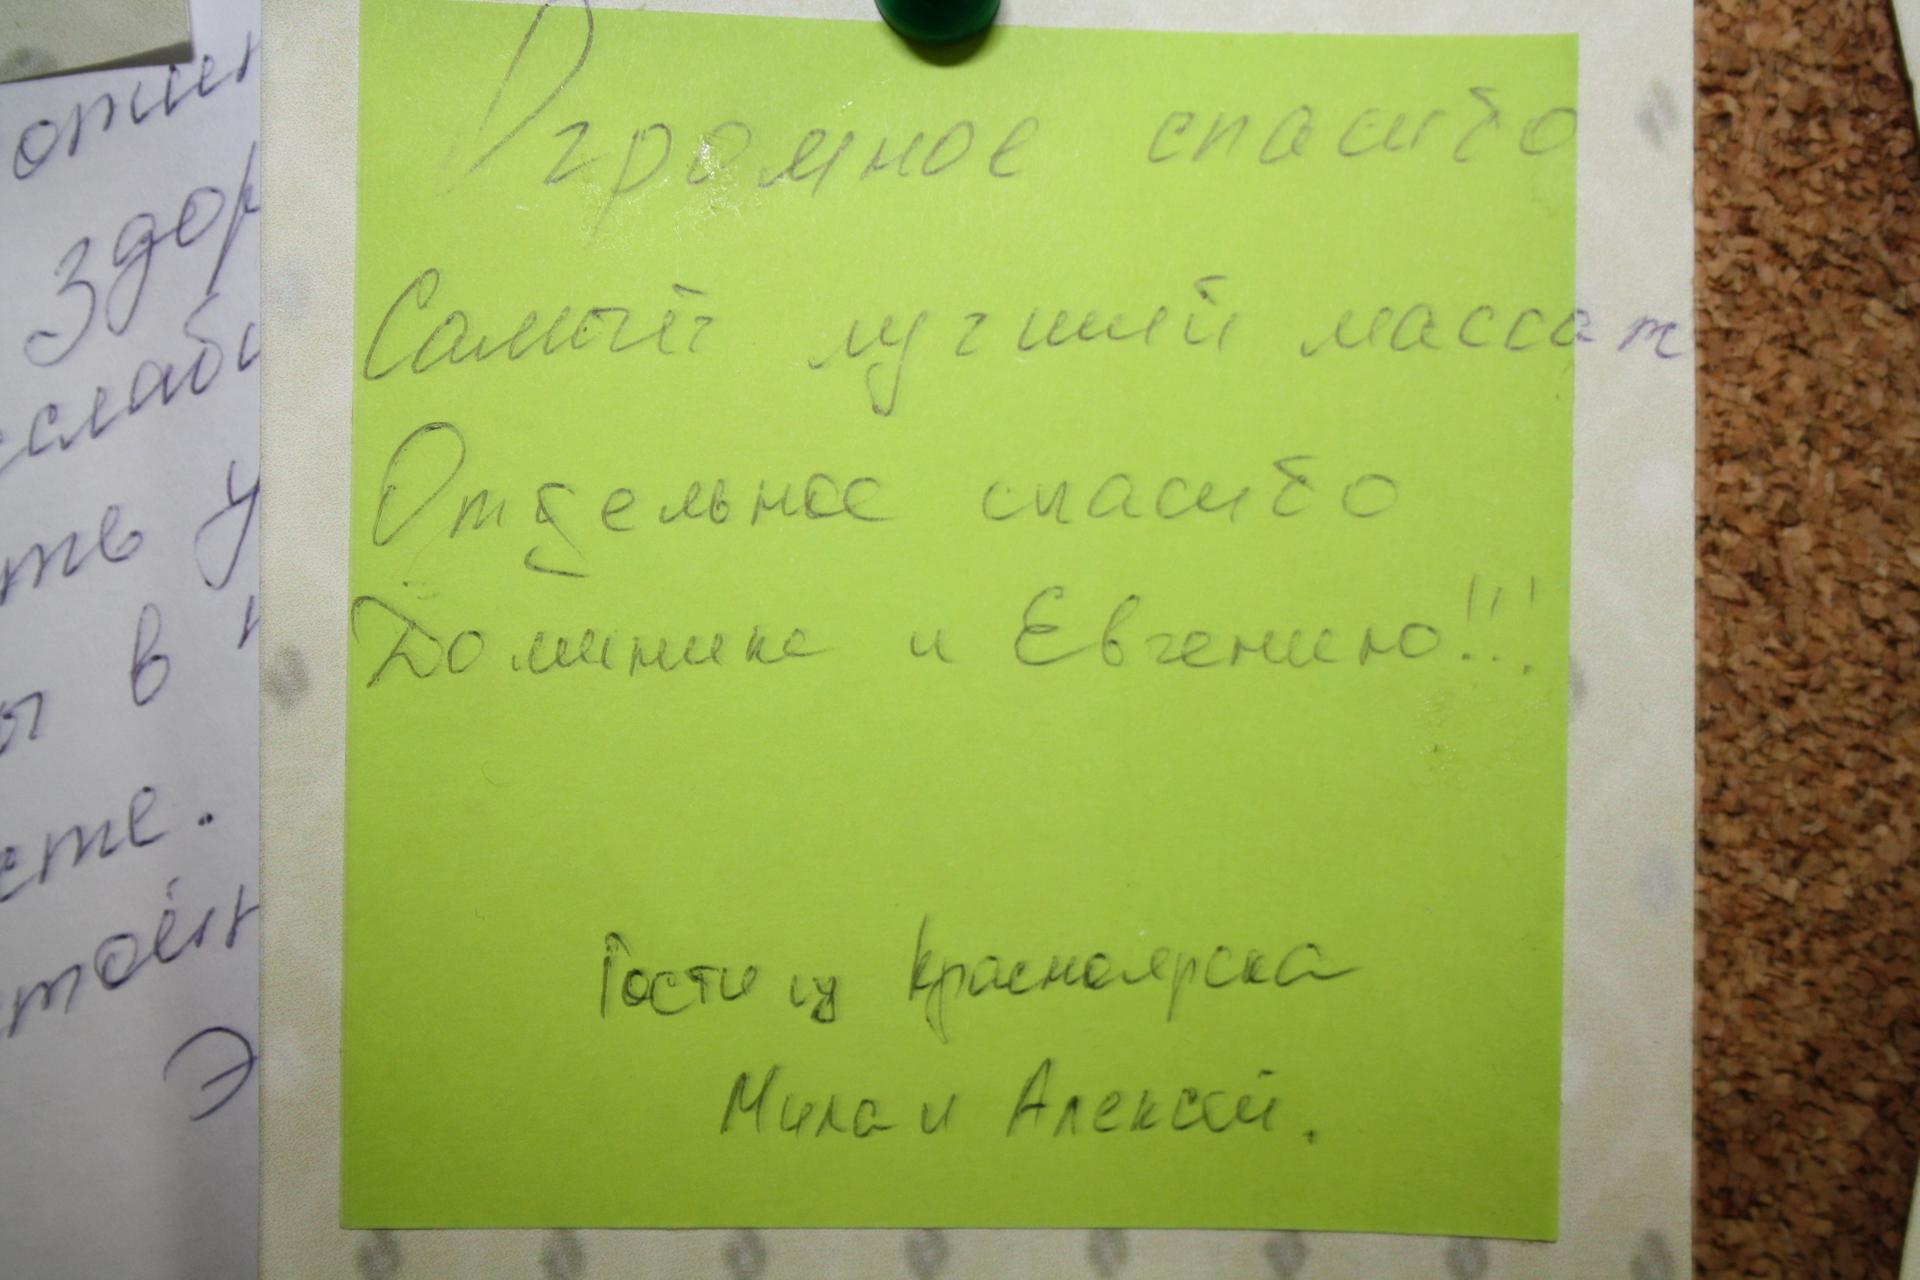 Огромное спасибо
Самый лучший массаж
Отдельное спасибо
Доминике и Евгению!!!
Гости из Красноярска
Мила и Алексей.
здор
слаби
ть у
в
сте.
Э